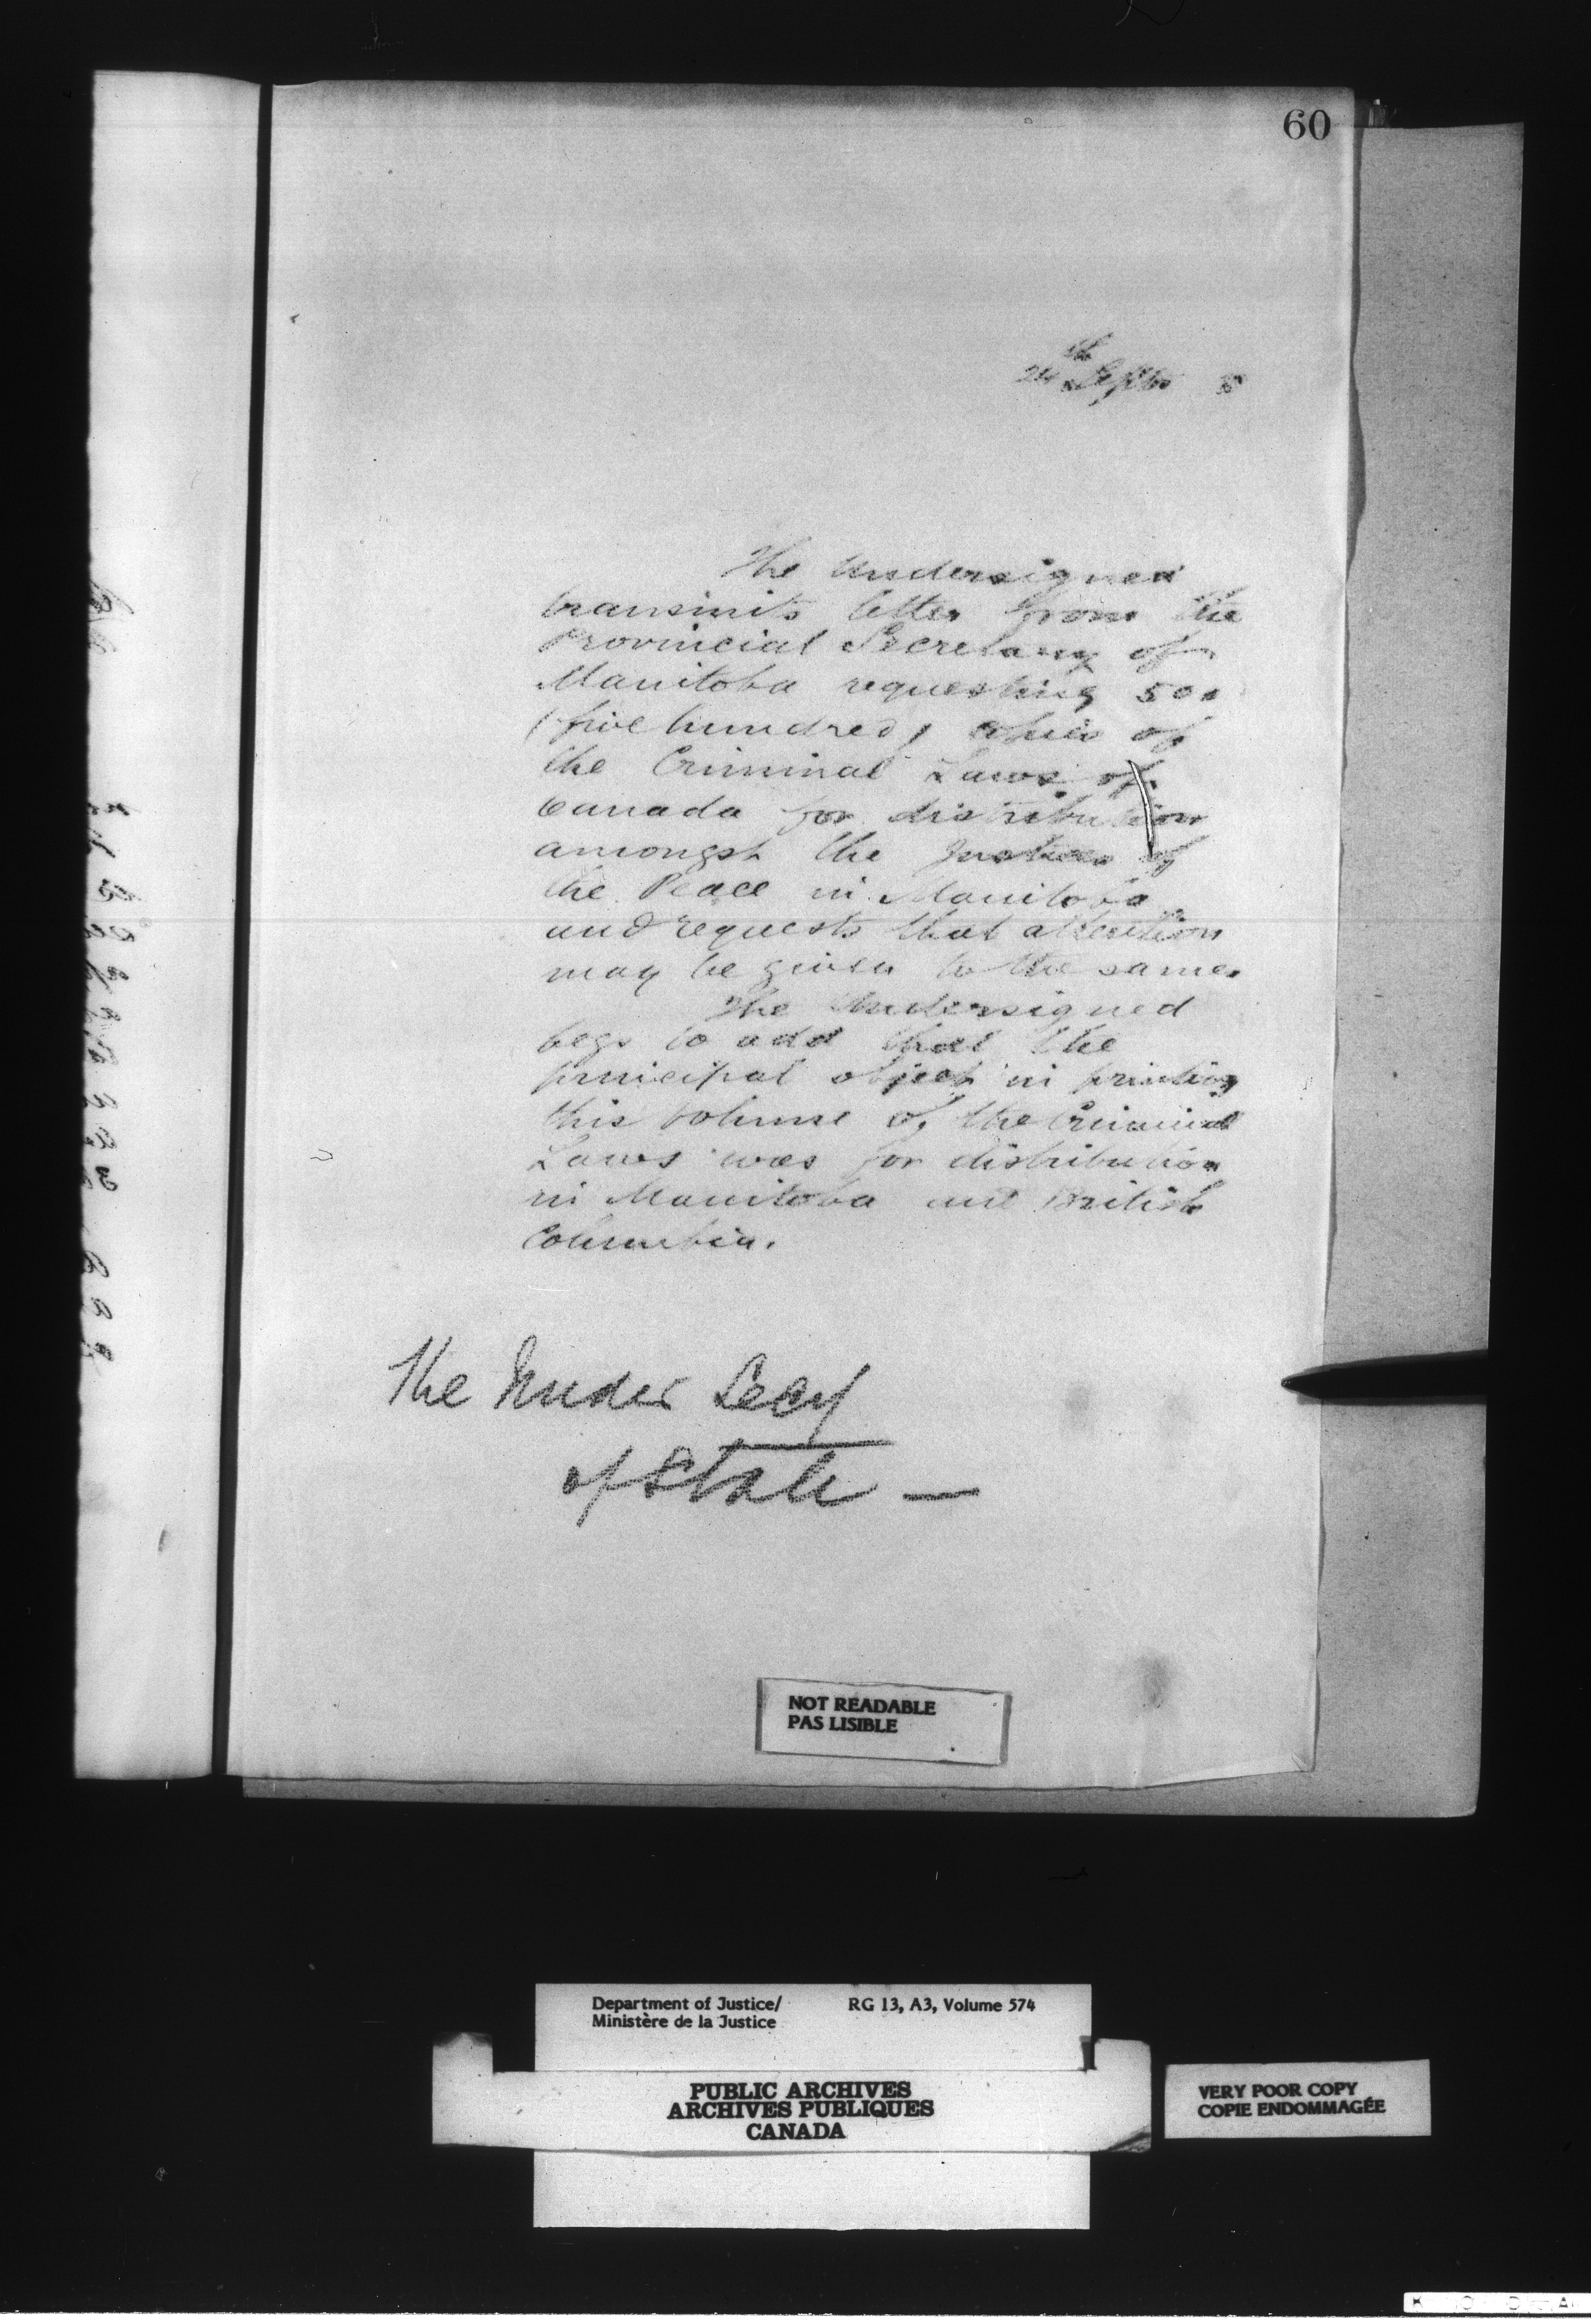 60
24th Septr 5
The Undersigned
transmits letter from the
Provincial Secretary of
Manitoba requesting 500
(five hundred) copies of
the Criminal Laws of
Canada for distribution
amongst the Justices of
the Peace in Manitoba
and requests that attention
may be given to the same.
The Undersigned
begs to add that the
principal object in printing
this volume of the Criminal
Laws was for distribution
in Manitoba and British
Columbia.
The Under Secy
of State —
NOT READABLE
PAS LISIBLE
Department of Justice/ RG 13, A3, Volume 574
Ministère de la Justice
PUBLIC ARCHIVES
ARCHIVES PUBLIQUES
CANADA
VERY POOR COPY
COPIE ENDOMMAGÉE